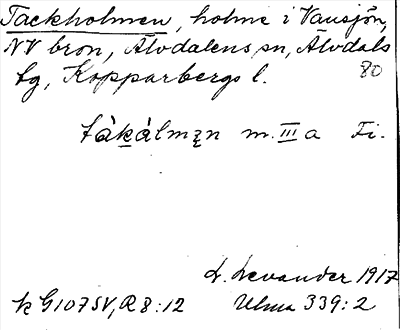 Tackholmen, holme i Vansjön,
NV bron, Älvdalens sn, Älvdals
tg, Kopparbergs l. 80
tàkálmęn m. III a Fi.
L. Levander 1917
k G107SV, R8:12 Ulma 339:2